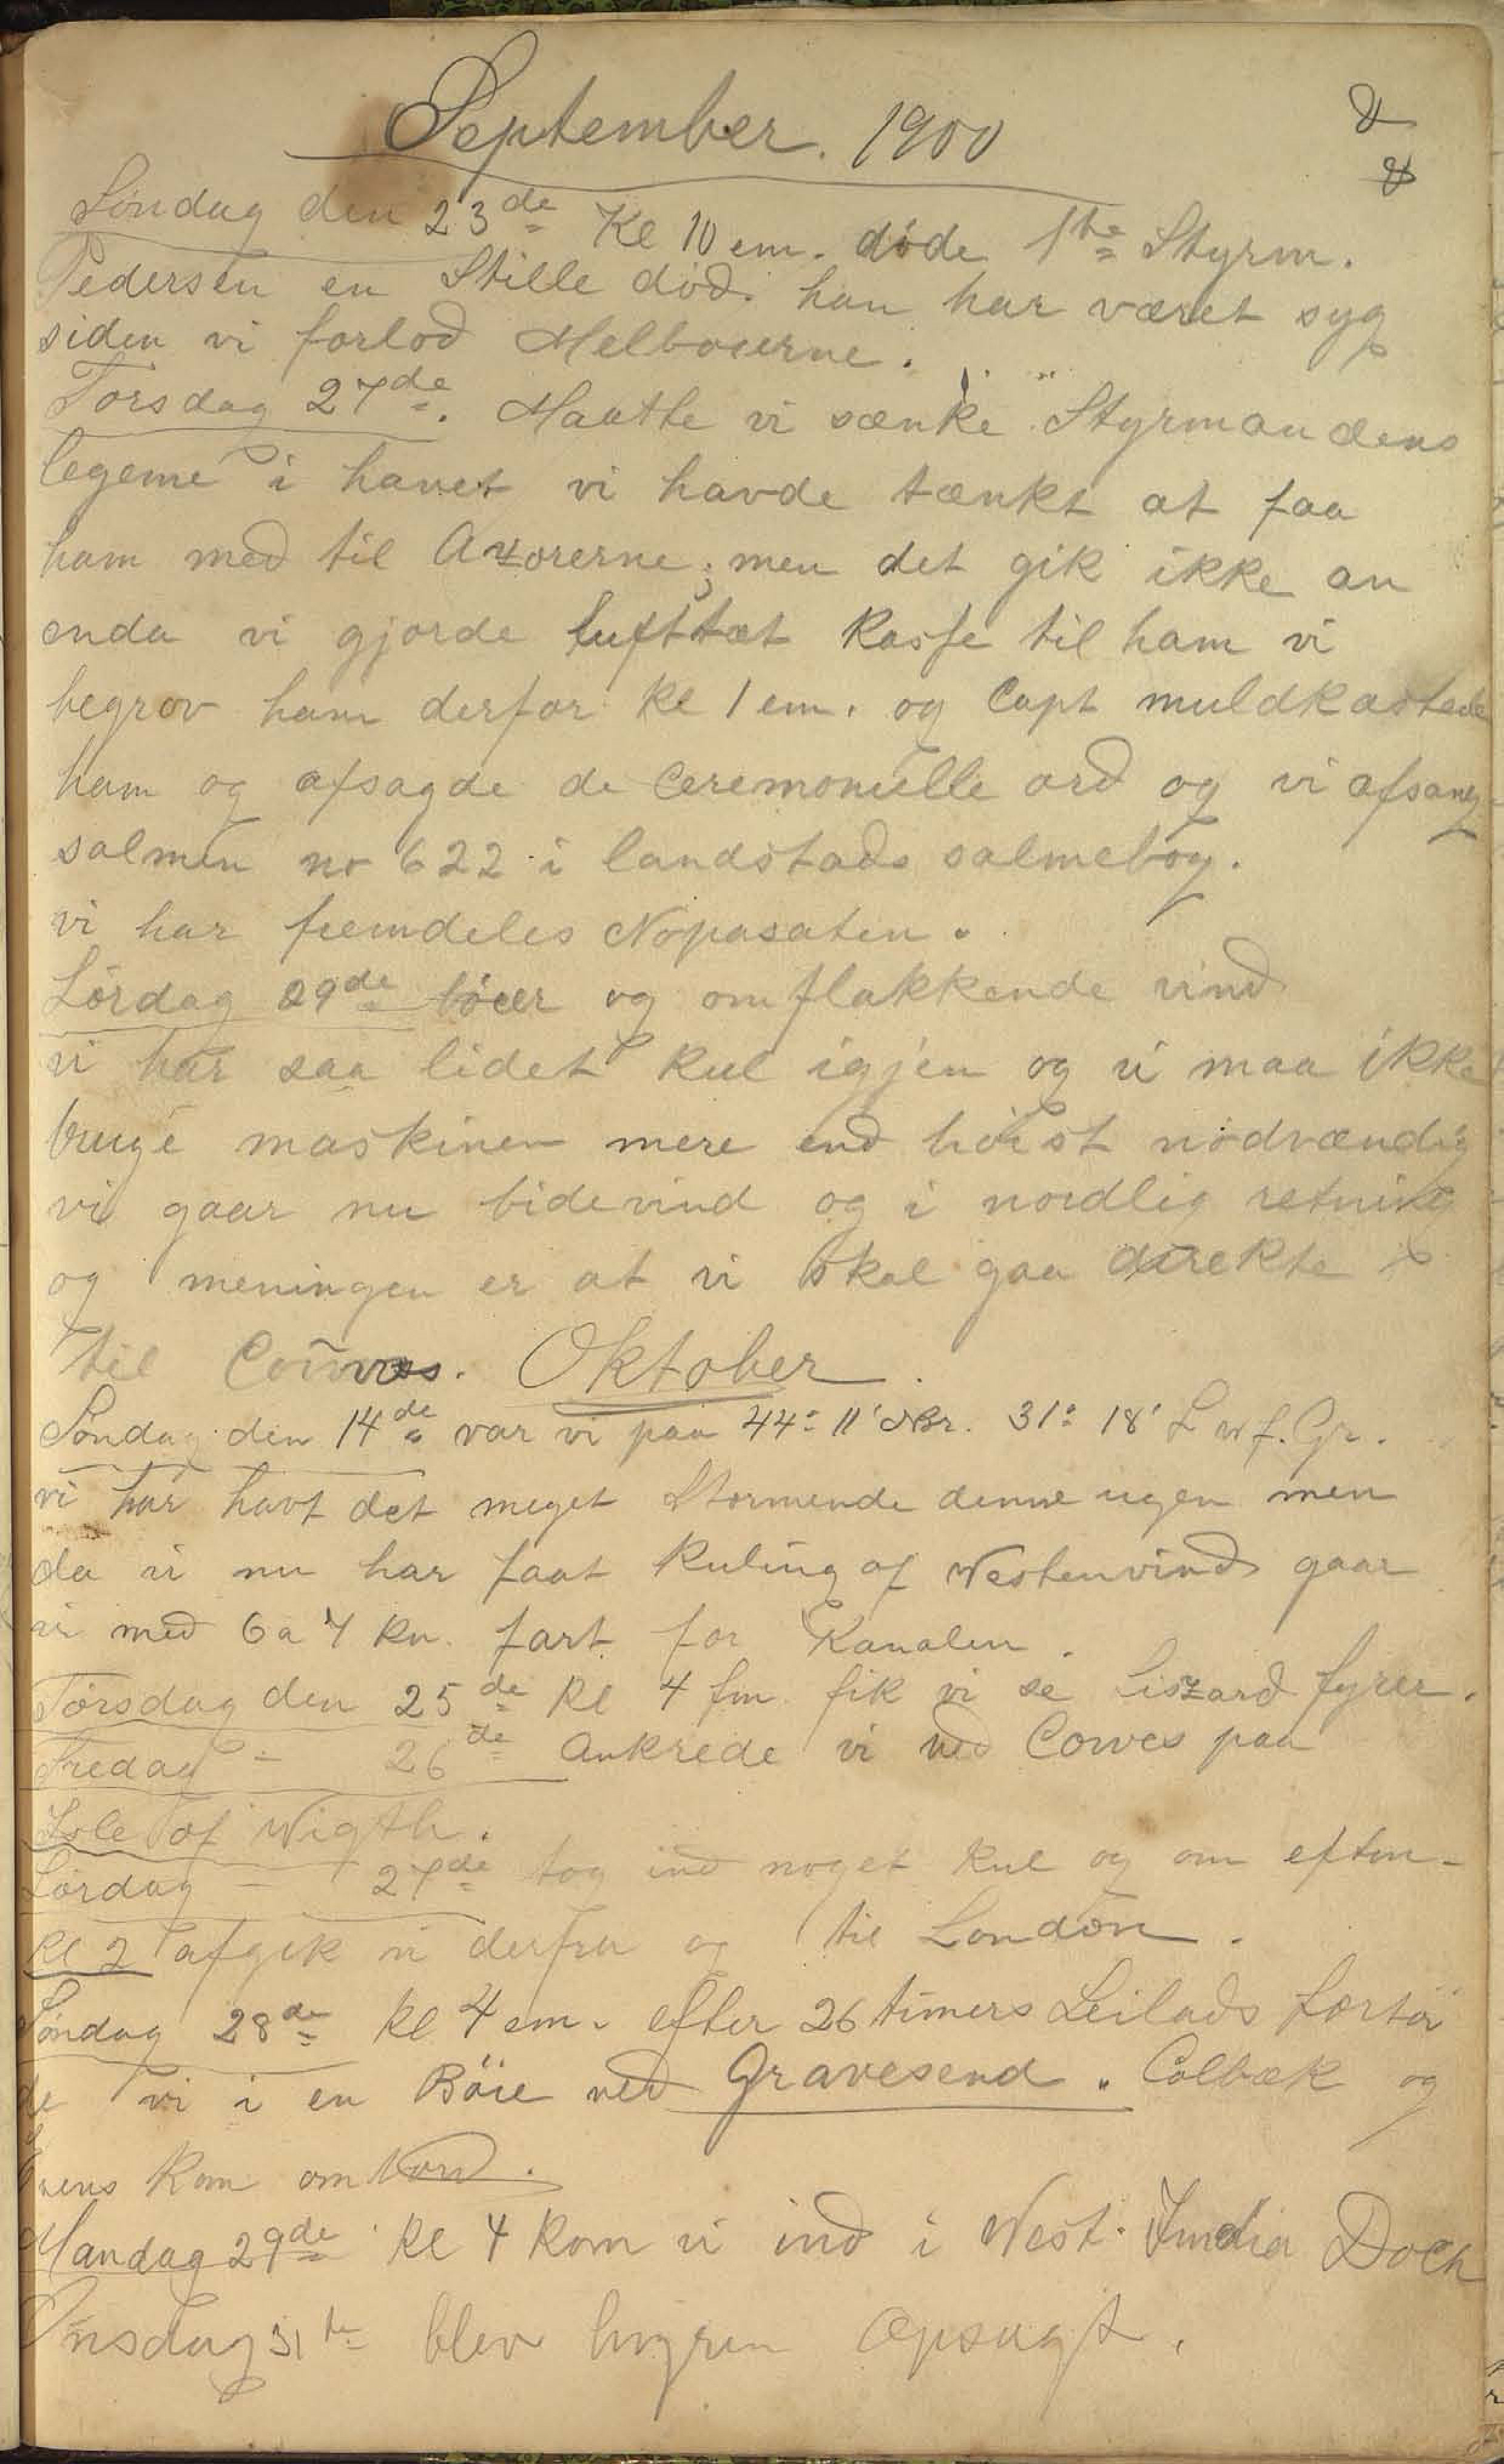 September. 1900
Søndag den 23de Kl 10 em. døde 1ste Styrm.
Pedersen en Stille død. han har været syg
siden vi forlod Melbourne.
Torsdag 27de. Maatte vi sænke Styrmandens
legeme i havet vi havde tænkt at faa
ham med til Azorerne; men det gik ikke an
enda vi gjorde lufttæt Kasse til ham vi
begrov ham derfor Kl 1 em. og Capt muldkastede
ham og afsagde de Ceremonielle ord og vi afsang
salmen no 622 i landstads salmebog.
vi har fremdeles Nopasaten.
Lørdag 29de bøeer og omflakkende vind
vi har saa lidet Kul igjen og vi maa ikke
bruge maskinen mere end høist nødvændig
vi gaar nu bidevind og i nordlig retning
og meningen er at vi skal gaa direkte
til Cowes. Oktober.
Søndag den 14de var vi paa 44° 11' NBr. 31° 18' L W f. Gr.
vi har havt det meget Stormende denne ugen men
da vi nu har faat Kuling af Westenvind gaar
vi med 6 a 7 Kn. fart for Kanalen.
Torsdag den 25de Kl 4 fm fik vi se Liszard fyrer.
Fredag - 26de Ankrede vi ved Cowes paa
Isle of Wigth.
Lørdag - 27de tog ind noget Kul og om eftm-
Kl 2 afgik vi derfra og til London.
Søndag 28de Kl 4 em. efter 26 timers Seilads fortøi
de vi i en Bøie ved Gravesend. Colbæk og
Kom ombord.
Mandag 29de Kl 4 Kom vi ind i West. India Dock
Onsdag 31te blev hyren Opsagt.